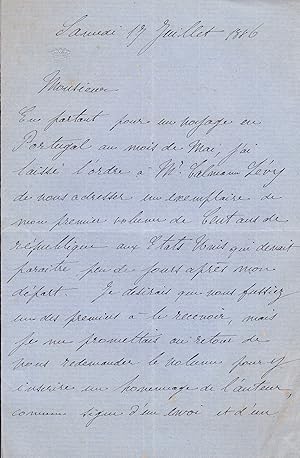 Samedi 17 Juillet 1886
Monsieur
En partant pour un voyage en
Portugal au mois de Mai, j'ai
laissé l'ordre à Mr. Calmann Lévy
de vous adresser un exemplaire de
mon premier volume de huit ans de
république aux Etats Unis qui devait
paraître peu de jours après mon
départ. Je désirais que vous fussiez
un des premiers à le recevoir, mais
je me promettais au retour de
vous redemander le volume pour y
inscrire un hommage de l'auteur,
comme signe d'un envoi et d'un